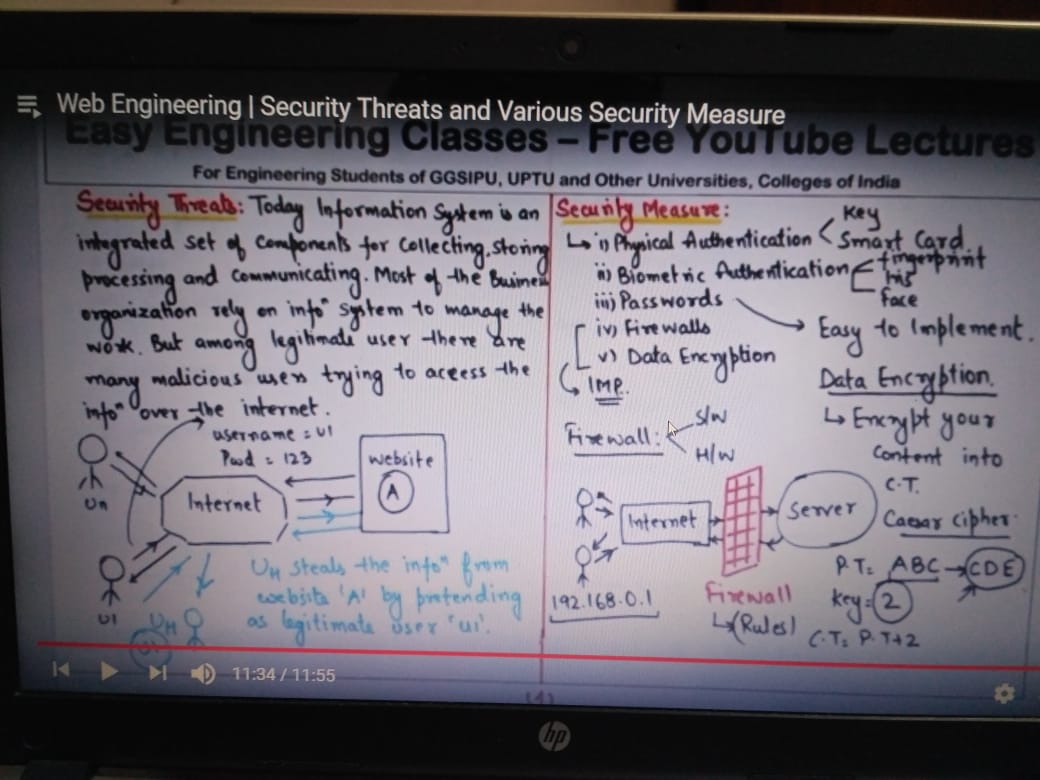 Web Engineering | Security Threats and Various Security Measure
Easy Engineering Classes – Free YouTube Lectures
For Engineering Students of GGSIPU, UPTU and Other Universities, Colleges of India
Security Threats: Today Information System is an
integrated set of components for collecting, storing
processing and communicating. Most of the Business
organization rely on infoⁿ system to manage the
work. But among legitimate user there are
many malicious users trying to access the
infoⁿ over the internet.
username = U1
Pwd = 123
Un
Internet
website
A
U1
UH
UH steals the infoⁿ from
website 'A' by pretending
as legitimate user 'u1'.
Security Measure:
i) Physical Authentication
Key
Smart Card.
ii) Biometric Authentication
fingerprint
Iris
face
iii) Passwords
Easy to Implement.
iv) Firewalls
v) Data Encryption
IMP.
Firewall:
S/W
H/W
Internet
Server
192.168.0.1
Firewall
(Rules)
Data Encryption.
Encrypt your
Content into
C.T.
Caesar Cipher
P.T = ABC → CDE
Key = 2
C.T = P.T + 2
11:34 / 11:55
hp